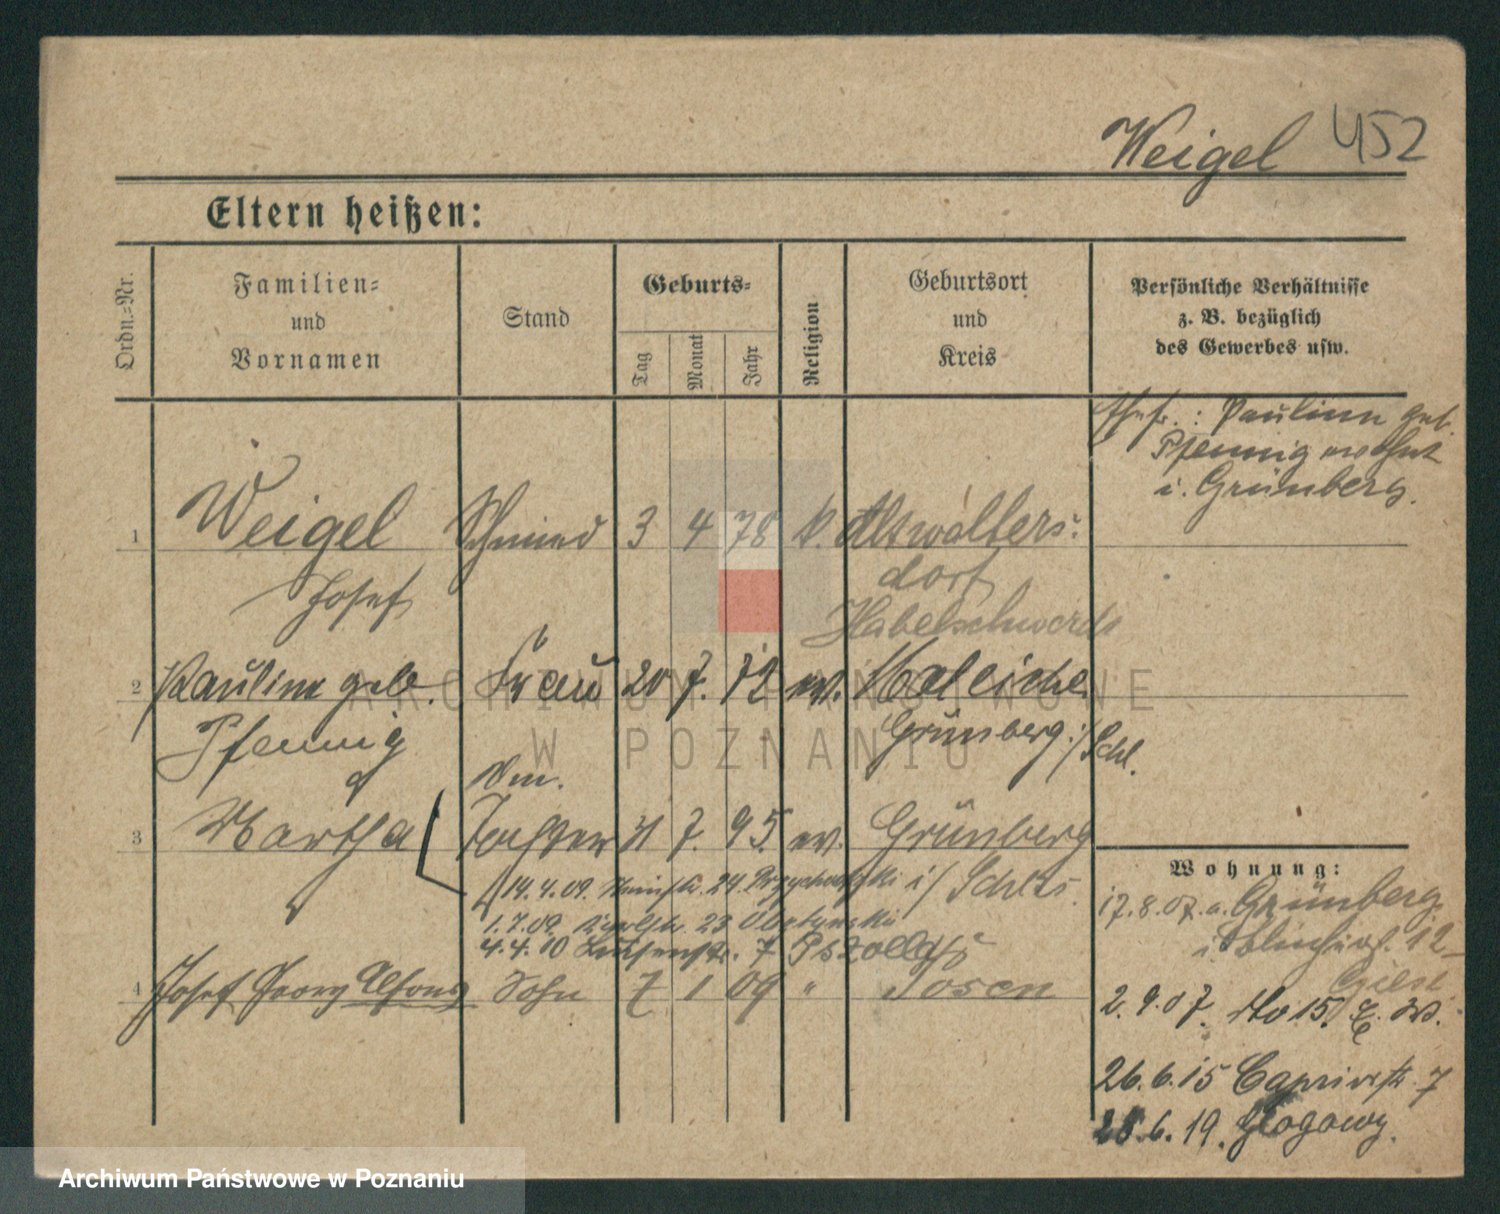 Weigel 452
Eltern heißen:
Ordn.=Nr.
Familien=
und
Vornamen
Stand
Geburts=
Tag
Monat
Jahr
Religion
Geburtsort
und
Kreis
Persönliche Verhältnisse
z. B. bezüglich
des Gewerbes usw.
Ehefr.: Pauline geb.
Pfennig wohnt
i. Grünberg.
1 Weigel Schmied 3 4 78 k. Altwalters=
Josef dorf
Habelschwerdt
2 Pauline geb. Frau 20 7. 72 ev. 
Pfennig Grünberg i/Schl.
3 Martha Tochter 31 7. 95. ev. Grünberg
i/Schles.
Wohnung:
14.4.09. 24
17.8.07. a. Grünberg
1.7.09. 23
4.4.10 Luisenstr. 7
12
4 Josef Georg Alfons Sohn 7 1 09 " Posen
2.9.07. 15.
26.6.15 Caprivistr. 7
28.6.19. Glogowy.
ARCHIWUM PAŃSTWOWE
W POZNANIU
Archiwum Państwowe w Poznaniu